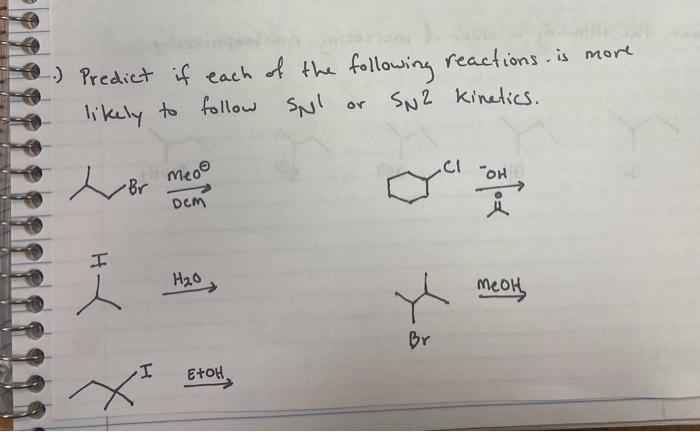 .) Predict if each of the following reactions is more
likely to follow SN1 or SN2 kinetics.
Br MeO⊖
DCM
Cl -OH
O
I
H2O
Br
MeOH
I EtOH